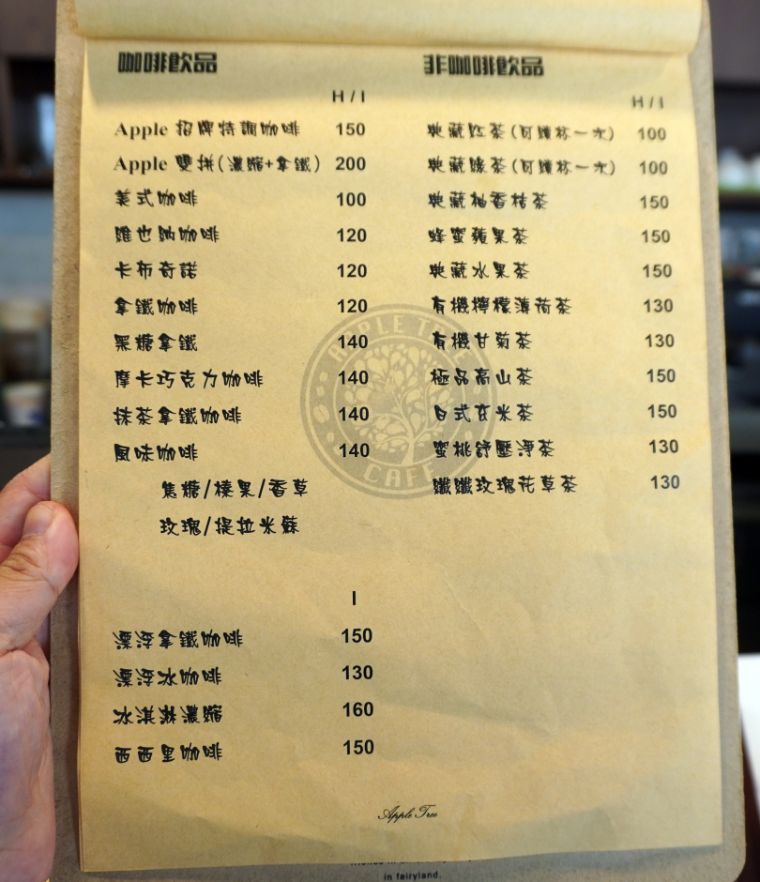 咖啡飲品
H / I
Apple 招牌特調咖啡 150
Apple 雙拼(濃縮+拿鐵) 200
美式咖啡 100
維也納咖啡 120
卡布奇諾 120
拿鐵咖啡 120
黑糖拿鐵 140
摩卡巧克力咖啡 140
抹茶拿鐵咖啡 140
風味咖啡 140
焦糖/榛果/香草
玫瑰/提拉米蘇
I
漂浮拿鐵咖啡 150
漂浮冰咖啡 130
冰淇淋濃縮 160
西西里咖啡 150
非咖啡飲品
H / I
典藏紅茶(可續杯一次) 100
典藏綠茶(可續杯一次) 100
典藏柚香桔茶 150
蜂蜜蘋果茶 150
典藏水果茶 150
有機檸檬薄荷茶 130
有機甘菊茶 130
極品高山茶 150
日式玄米茶 150
蜜桃舒壓淨茶 130
孅孅玫瑰花草茶 130
APPLE TREE
CAFE
Apple Tree
in fairyland.